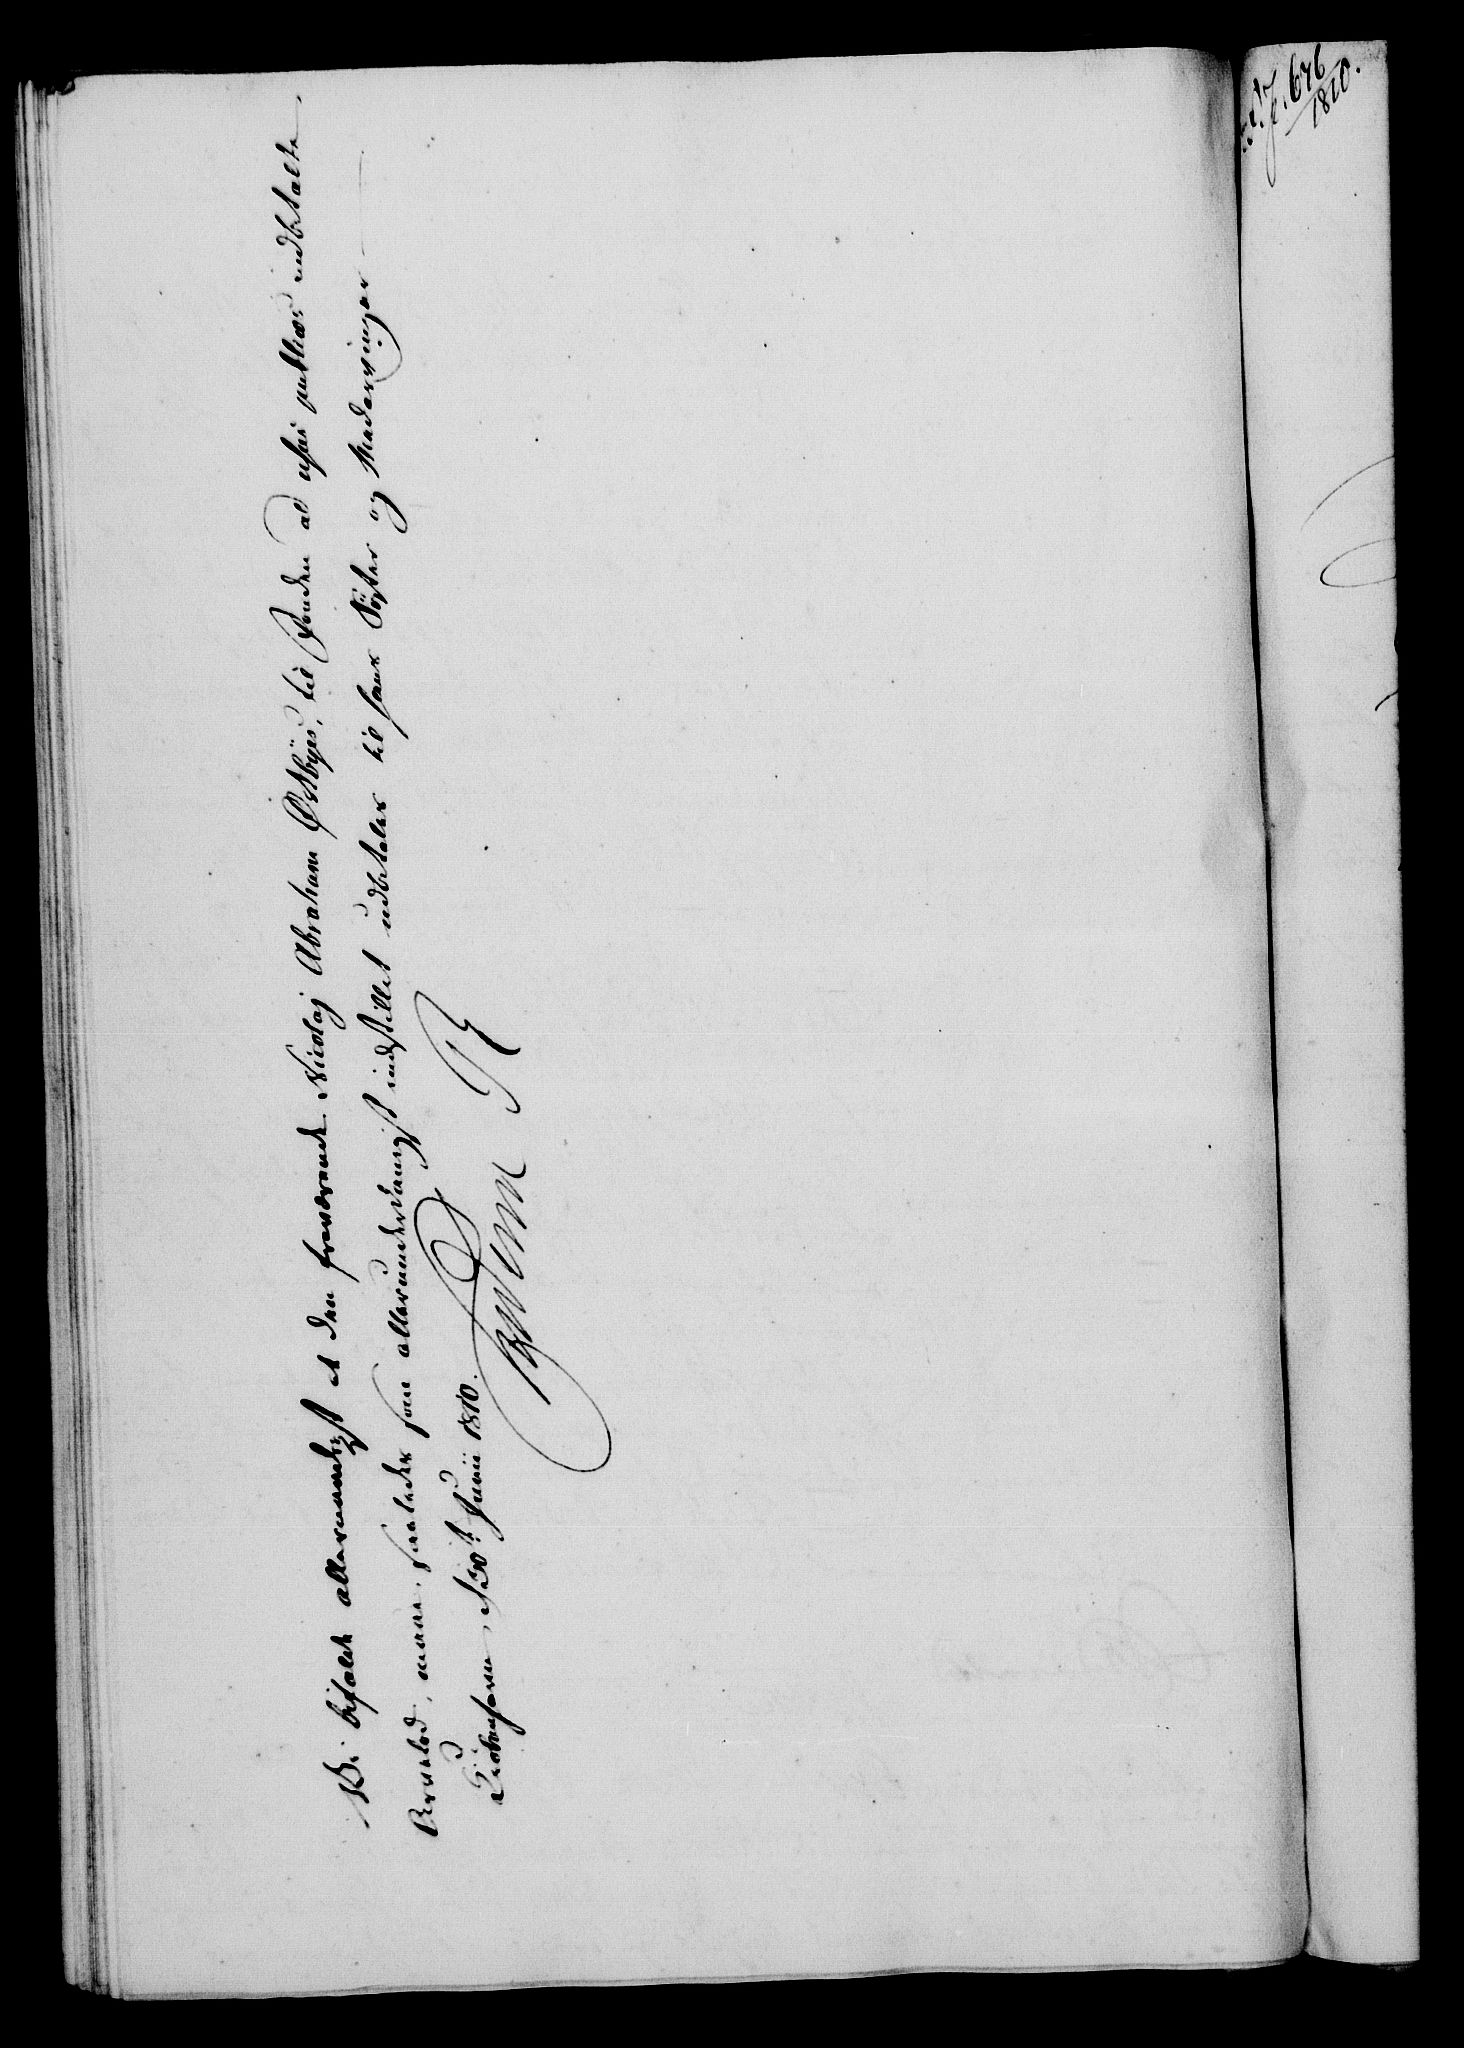 Vi befale allernaadigst at den fraværende Nicolaj Abraham Østbyes, til Fonden ad usus publicos indbetalte
Arvelod, maae, saaledes som allerunderdanigst indstillet udbetales til hans Søster og Medarvinger
Kiøbenhavn, d 30te Junii 1810.
Frederik R
J. 676
1810.